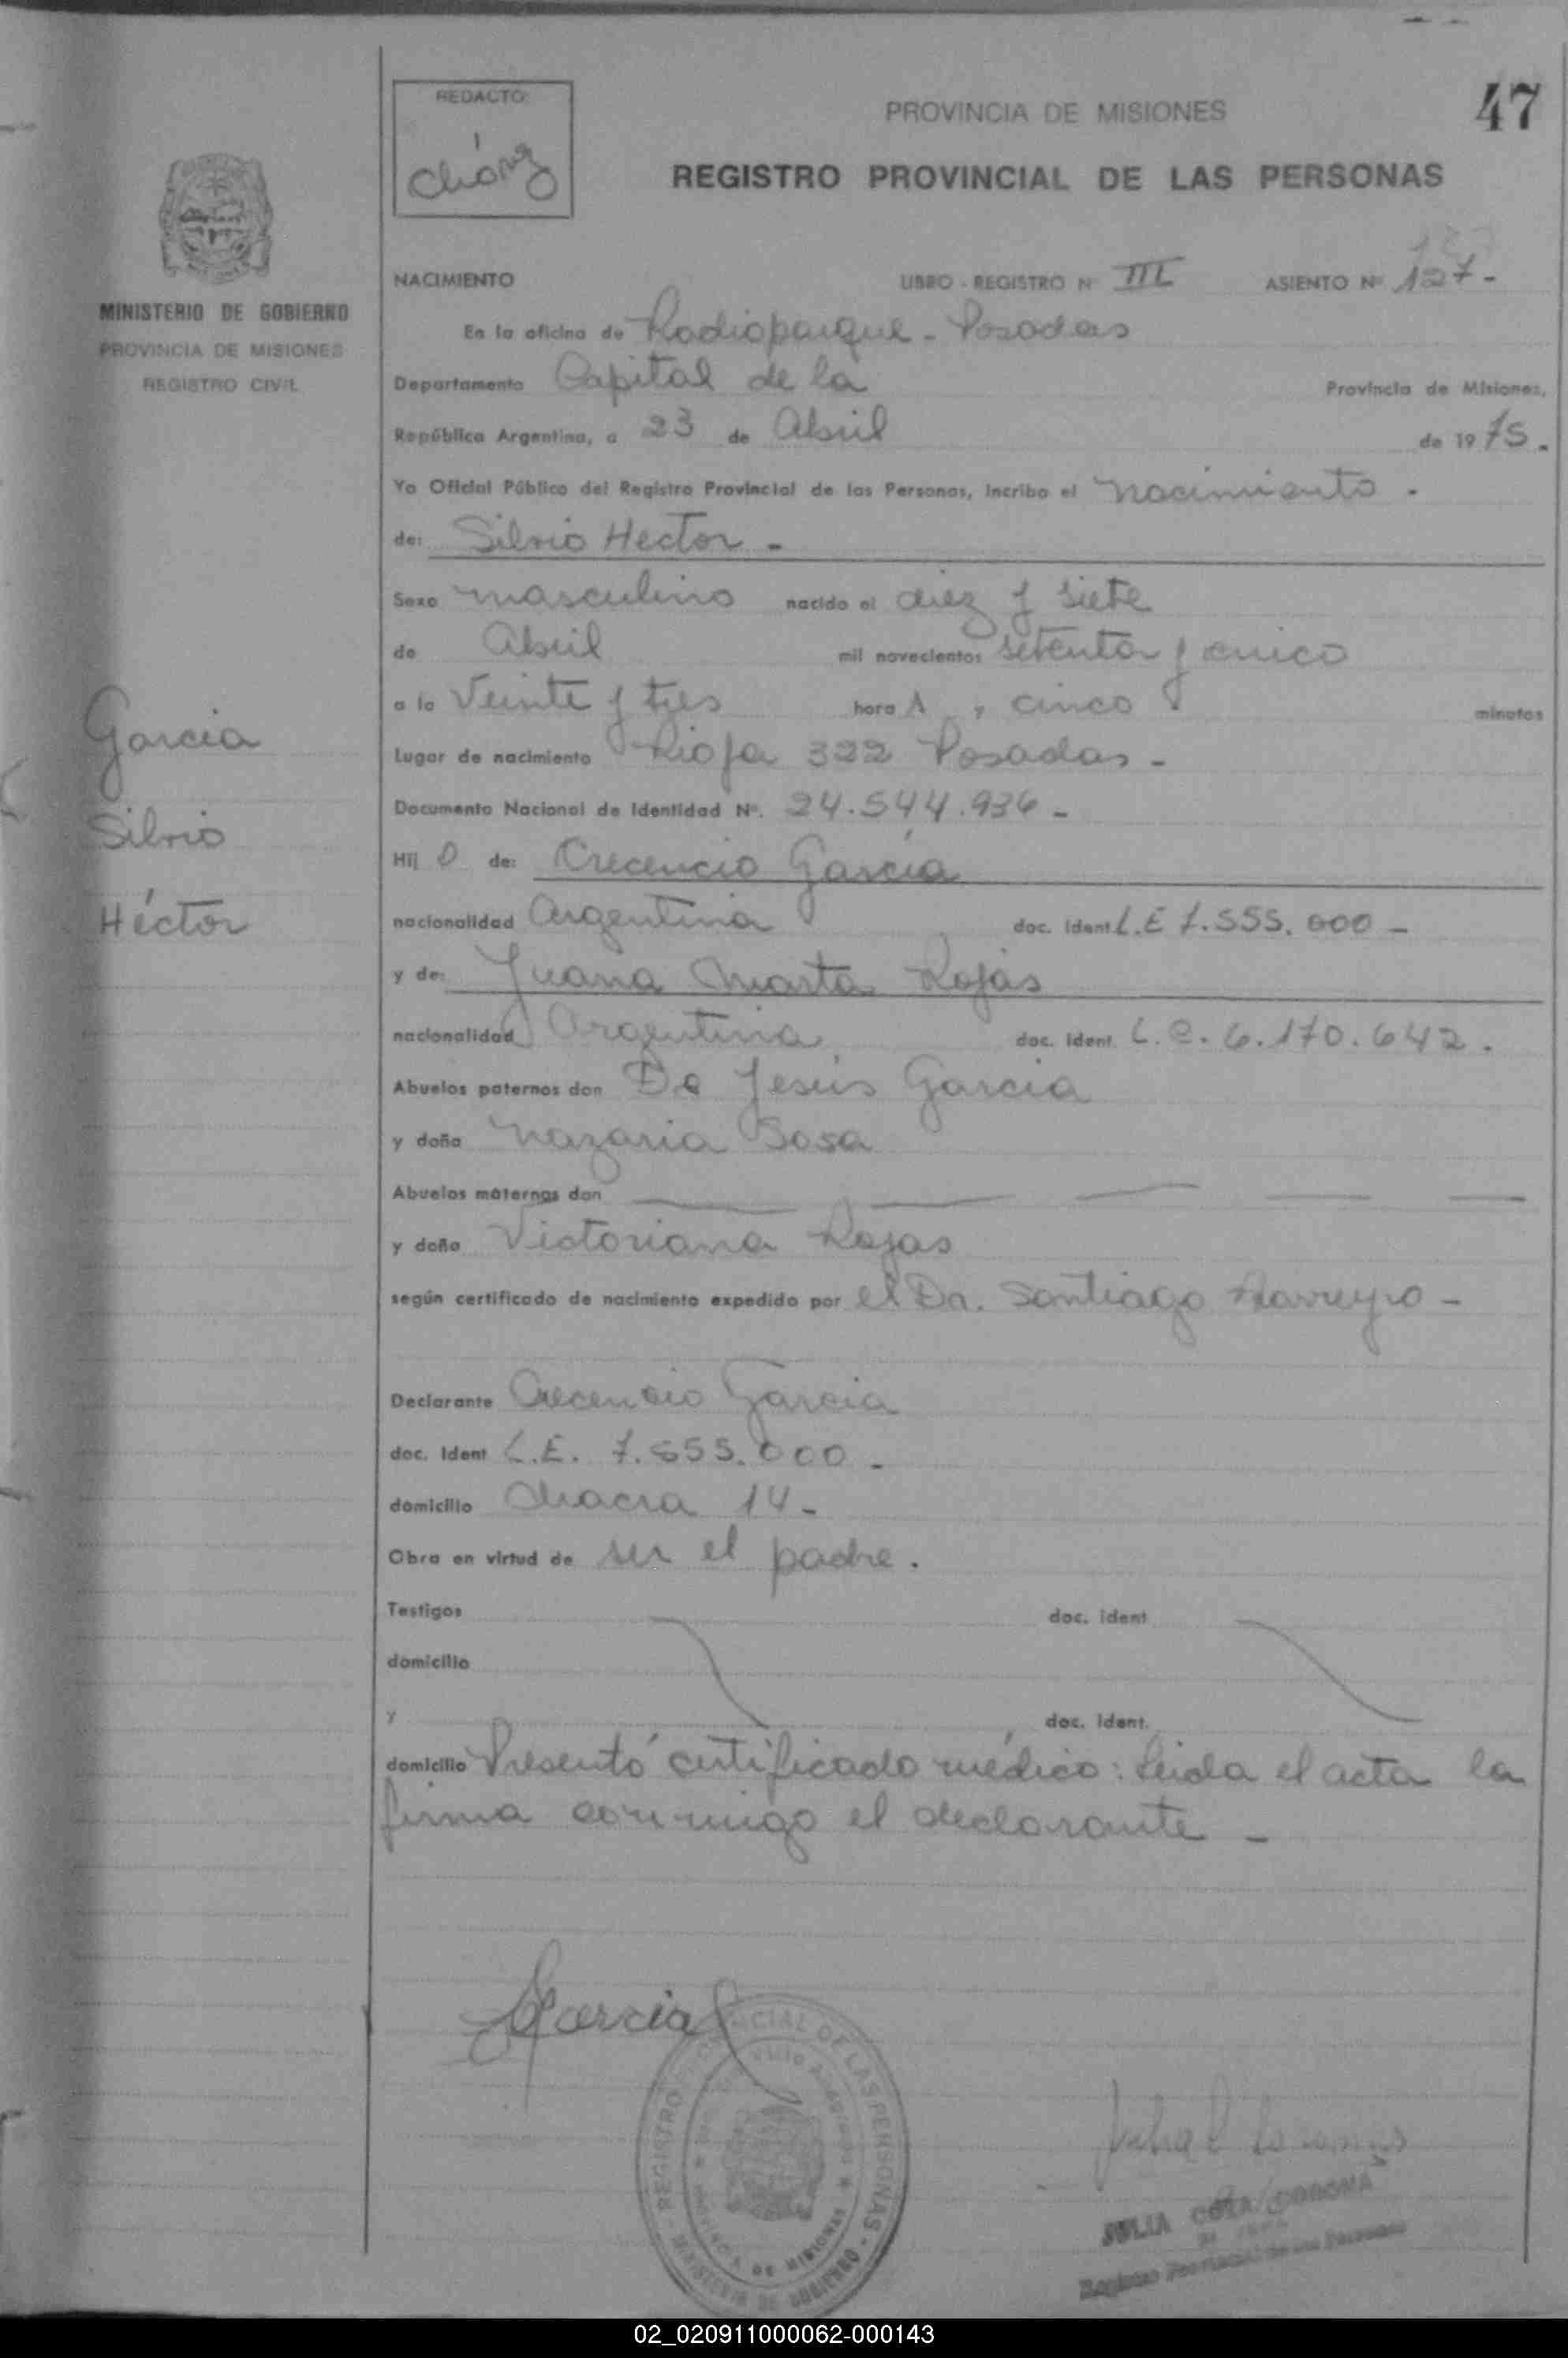 47
REDACTO:
PROVINCIA DE MISIONES
REGISTRO PROVINCIAL DE LAS PERSONAS
MINISTERIO DE GOBIERNO
PROVINCIA DE MISIONES
REGISTRO CIVIL
NACIMIENTO LIBRO - REGISTRO Nº III ASIENTO Nº 127-
En la oficina de Radioparque - Posadas
Departamento Capital de la Provincia de Misiones,
República Argentina, a 23 de Abril de 1975.
Yo Oficial Público del Registro Provincial de las Personas, Incribo el nacimiento.
de: Silvio Hector -
Sexo masculino nacido el diez y siete
de Abril mil novecientos setenta y cinco
a la Veinte y tres hora s, cinco minutos
Lugar de nacimiento Rioja 322 Posadas -
Documento Nacional de Identidad Nº. 24.544.936 -
Hij o de: Crecencio García
nacionalidad Argentina doc. Ident L.E 7.555.000 -
y de: Juana Marta Rojas
nacionalidad Argentina doc. Ident. L.C. 6.170.642.
Abuelos paternos don De Jesús García
y doña Nazaria Sosa
Abuelos maternos don
y doña Victoriana Rojas
según certificado de nacimiento expedido por el Dr. Santiago -
Declarante Crecencio García
doc. Ident L.E. 7.555.000 -
domicilio Chacra 14 -
Obra en virtud de ser el padre.
Testigos doc. Ident
domicilio
y doc. Ident.
domicilio Presentó certificado médico: Leida el acta la
firma conmigo el declarante -
Garcia
Silvio
Héctor
Garcia
REGISTRO PROVINCIAL DE LAS PERSONAS - MINISTERIO DE GOBIERNO
PROVINCIA DE MISIONES
JULIA
Registro Provincial de las Personas
02_020911000062-000143